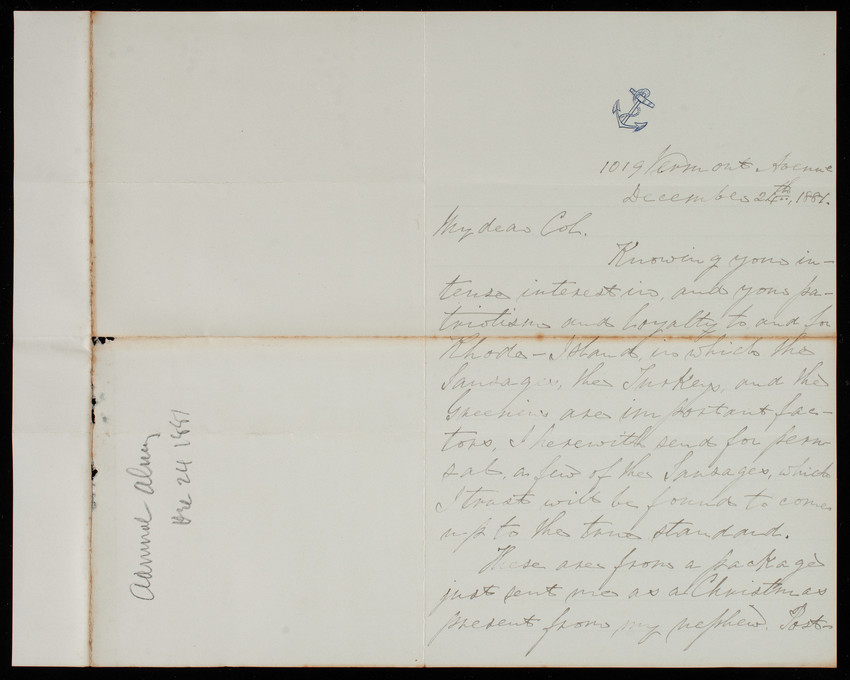 1019 Vermont Avenue
December 24th, 1881.
My dear Col.
Knowing your in-
tense interest in, and your pa-
triotism and loyalty to and for
Rhode-Island, in which the
Sausages, the Turkeys, and the
Greenings are important fac-
tors, I herewith send for peru-
sal, a few of the Sausages, which
I trust will be found to come
up to the true standard.
These are from a package
just sent me as a Christmas
present from my nephew. Post-
Admiral Almy
Dec 24 1881